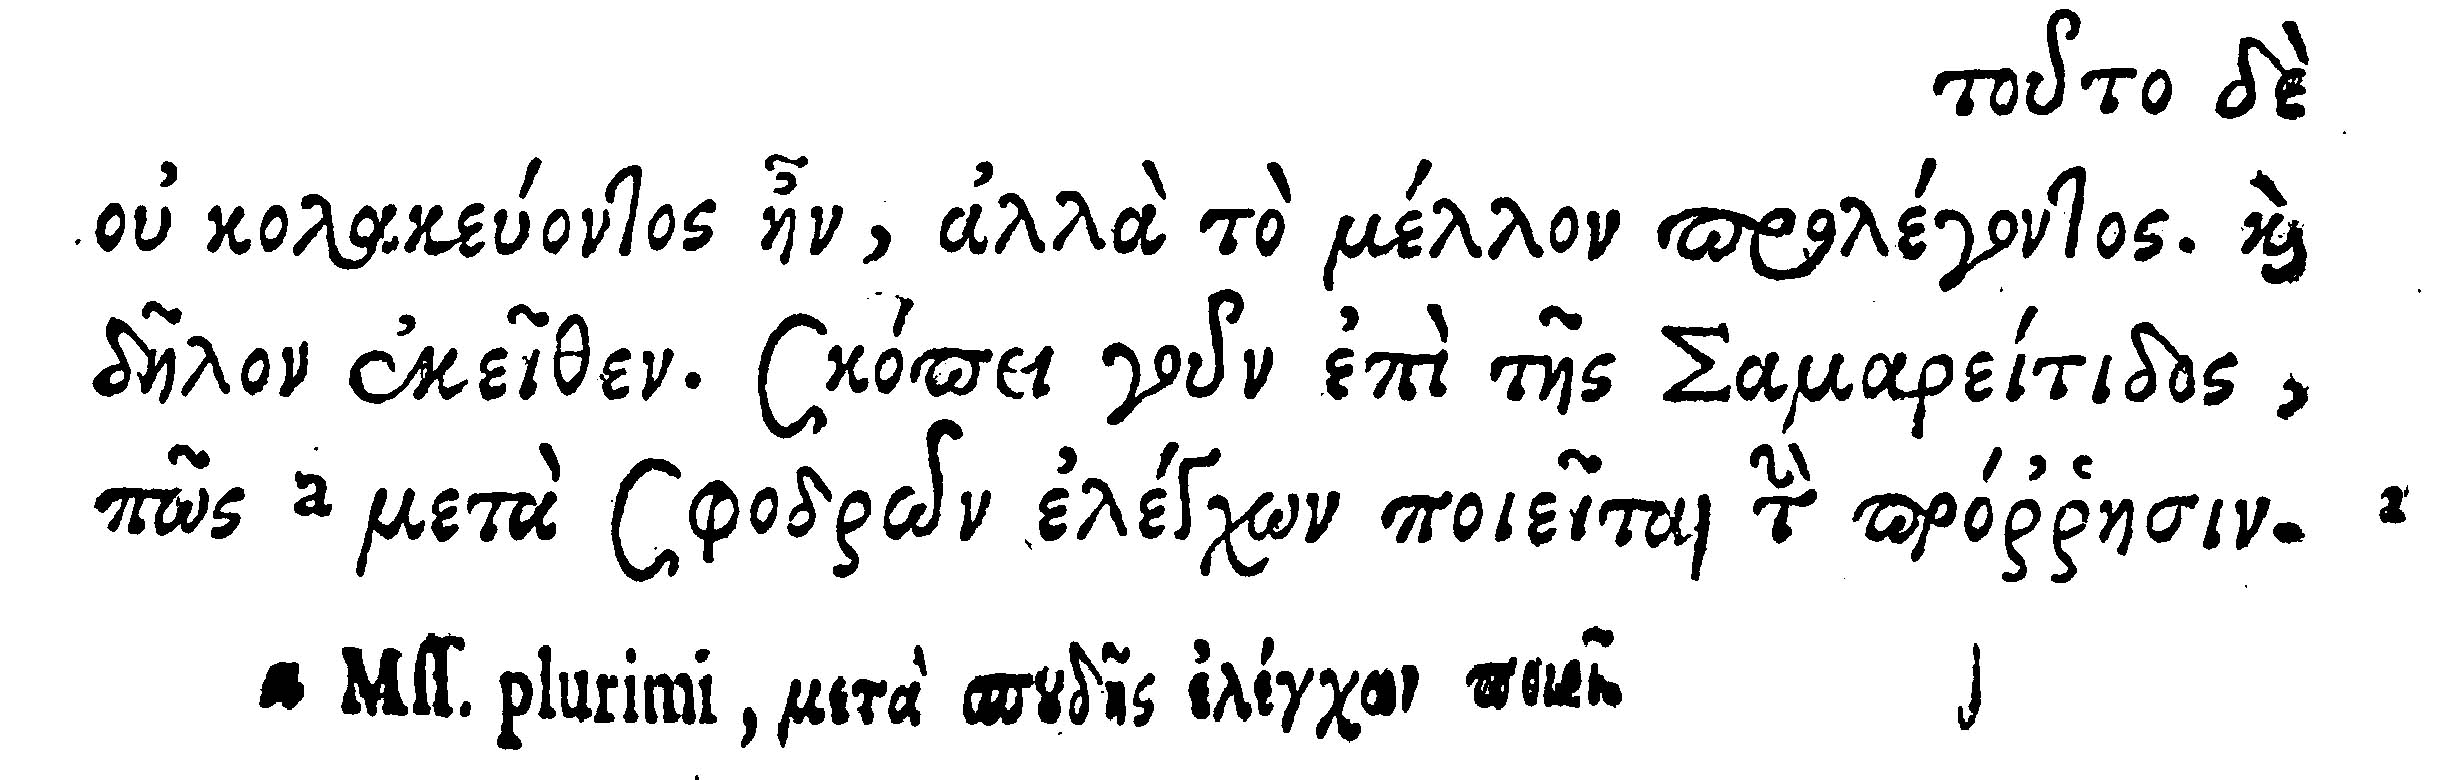 τοῦτο δὲ
οὐ κολακεύοντος ἦν, ἀλλὰ τὸ μέλλον προλέγοντος. καὶ
δῆλον ἐκεῖθεν. Σκόπει γοῦν ἐπὶ τῆς Σαμαρείτιδος,
πῶς a μετὰ σφοδρῶν ἐλέγχων ποιεῖται τὴν πρόῤῥησιν.
a Mss. plurimi, μετὰ σπουδῆς ἐλέγχων